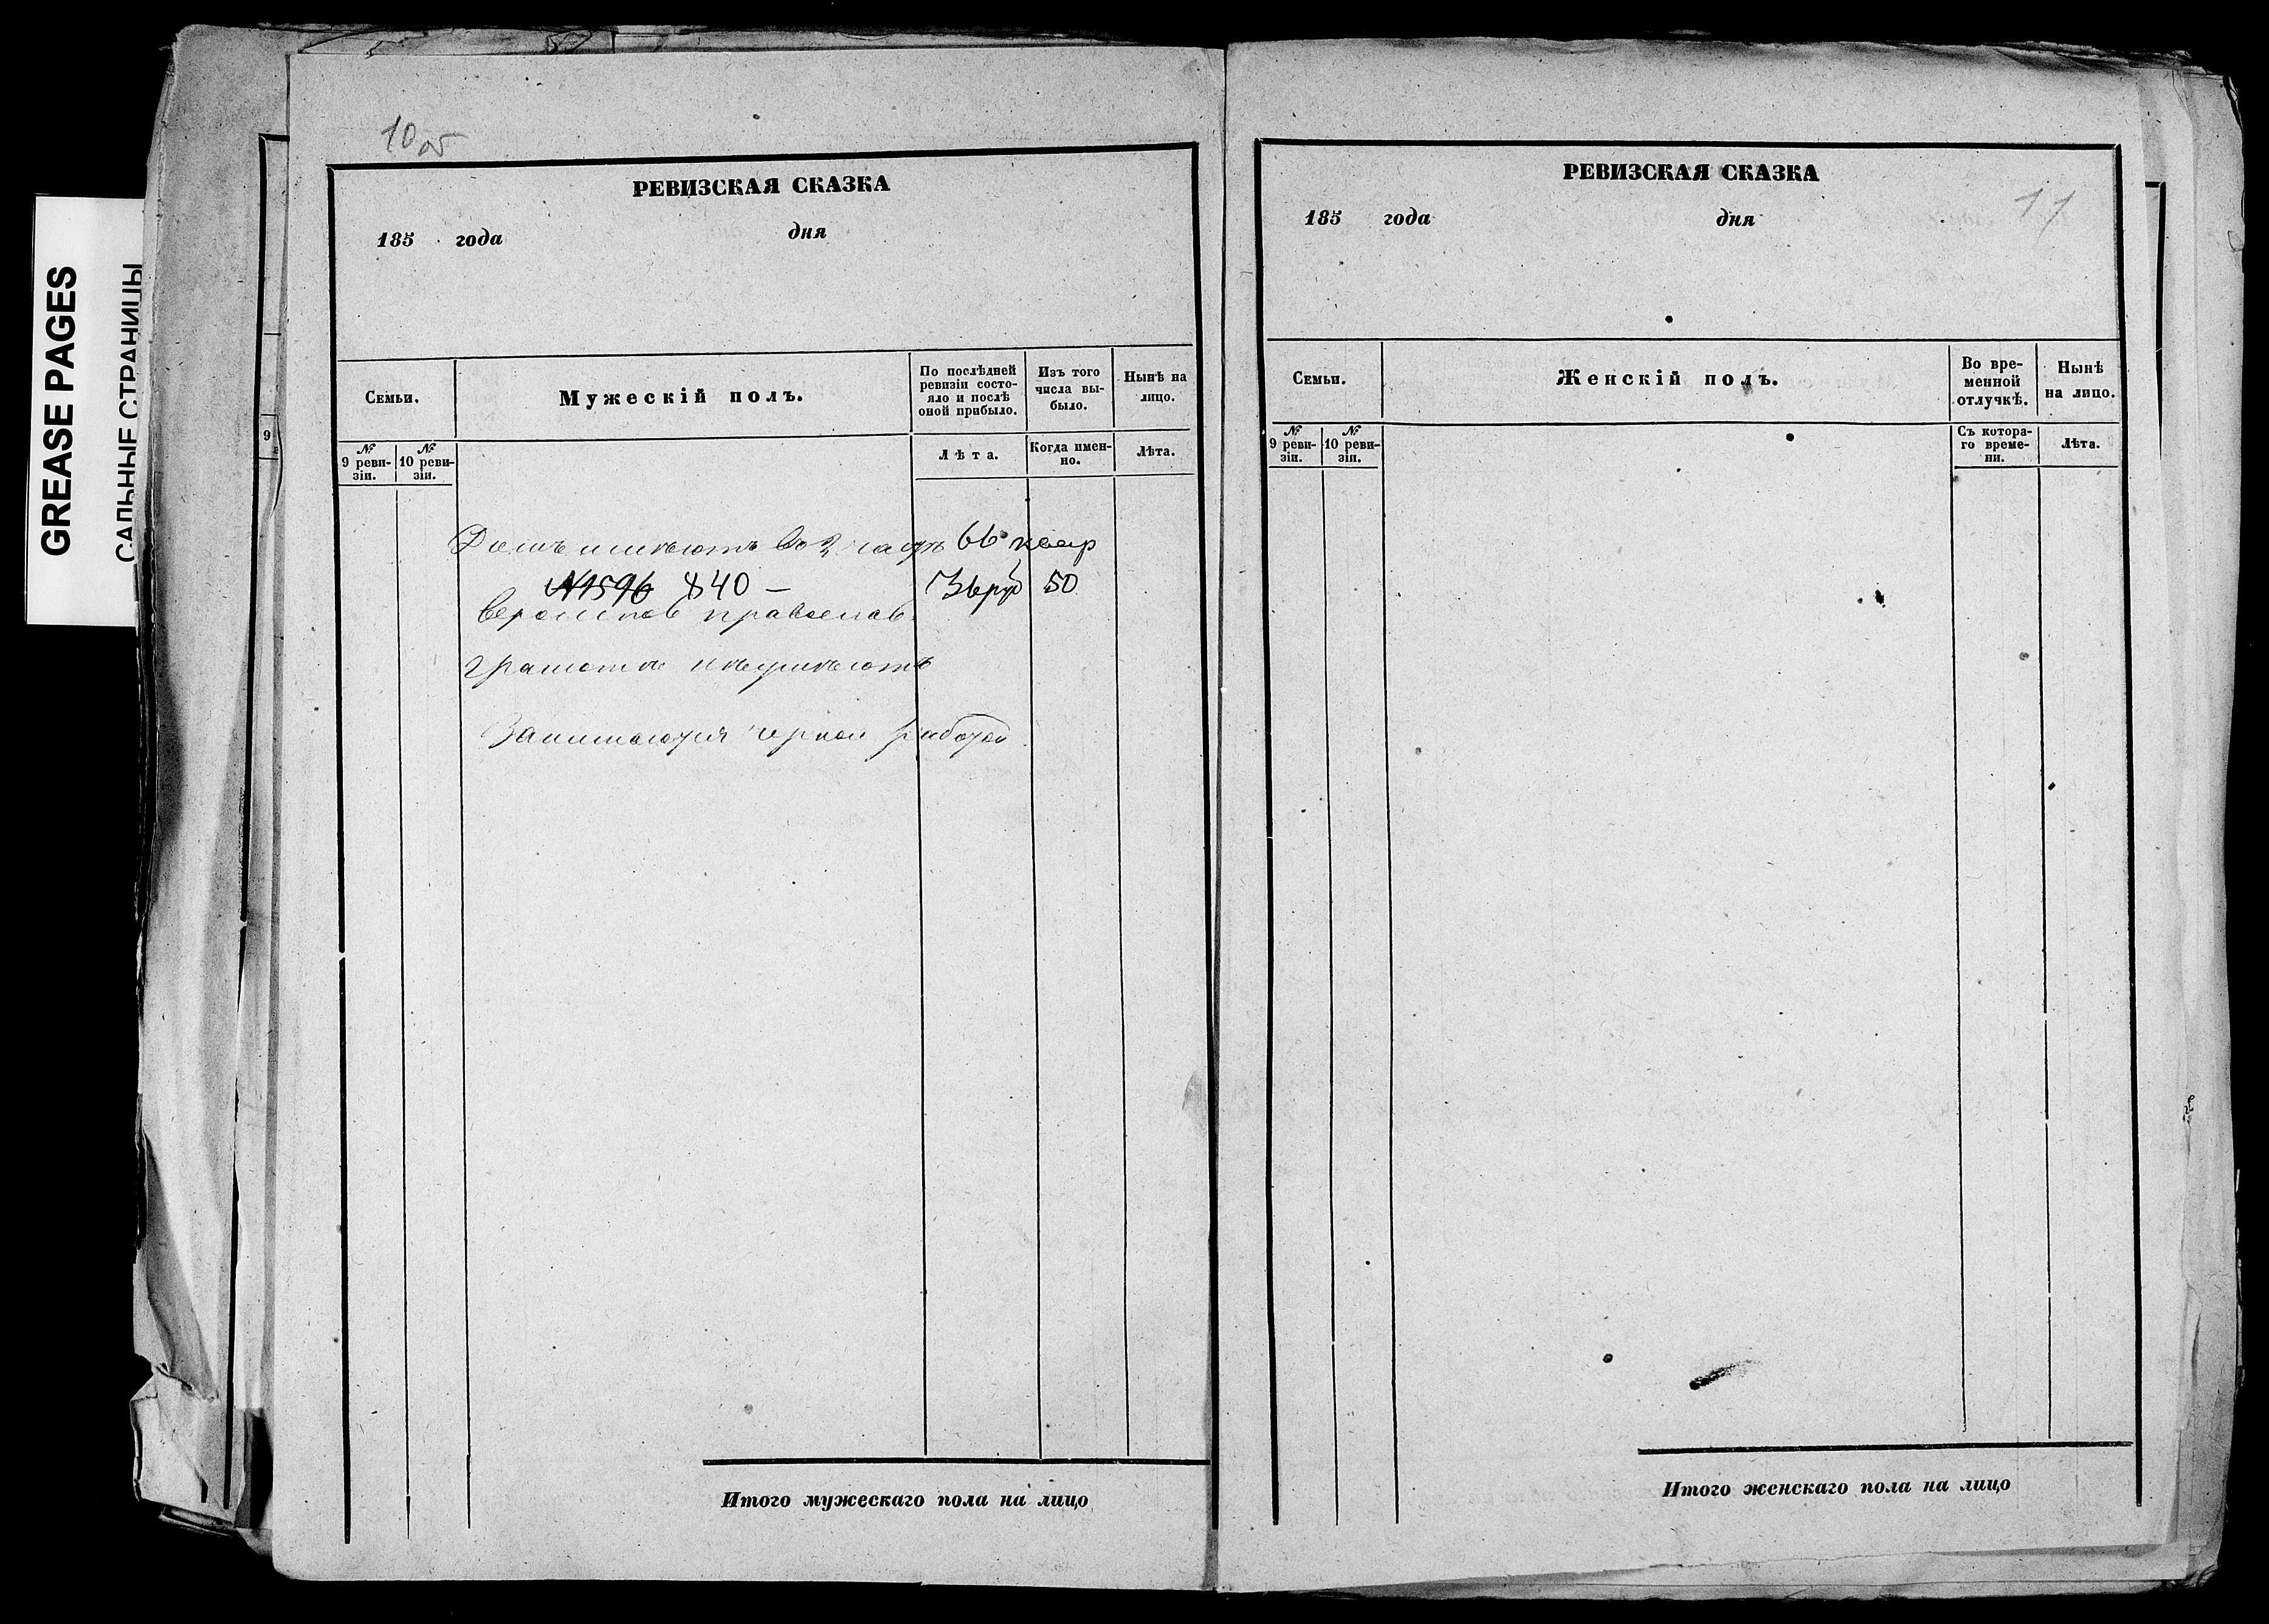 GREASE PAGES
САЛЬНЫЕ СТРАНИЦЫ
9
10 об
РЕВИЗСКАЯ СКАЗКА
185 года дня
Семьи.
Мужескій полъ.
По послѣдней
ревизіи состо-
яло и послѣ
оной прибыло.
Изъ того
числа вы-
было.
Нынѣ на
лицо.
№
9 реви-
зіи.
№
10 реви-
зіи.
Лѣта.
Когда имен-
но.
Лѣта.
Домъ имѣютъ во 2 части 66 квар
№1596 840 —
36 руб 50
вероиспов православ.
грамоте неумеютъ
Занимаются черной работой
Итого мужескаго пола на лицо
РЕВИЗСКАЯ СКАЗКА
11
185 года дня
Семьи.
Женскій полъ.
Во вре-
менной
отлучкѣ.
Нынѣ
на лицо.
№
9 реви-
зіи.
№
10 реви-
зіи.
Съ котора-
го време-
ни.
Лѣта.
Итого женскаго пола на лицо